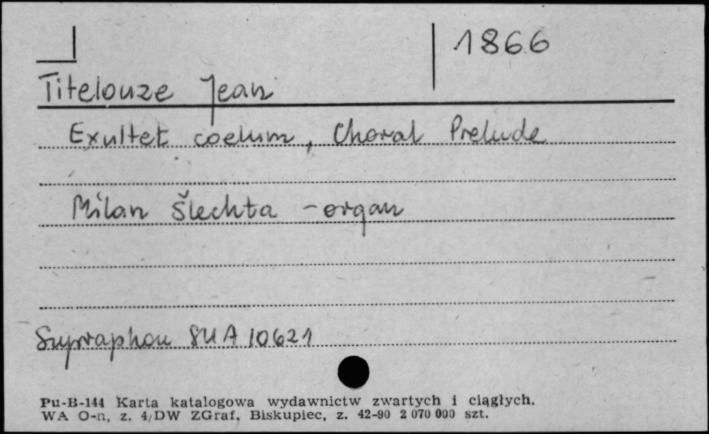 1866
Titelouze Jean
Exultet coelum, Choral Prelude
Milan Šlechta - organ
Supraphon SUA 10621
Pu-B-144 Karta katalogowa wydawnictw zwartych i ciągłych.
WA O-n, z. 4/DW ZGraf. Biskupiec, z. 42-90 2 070 000 szt.